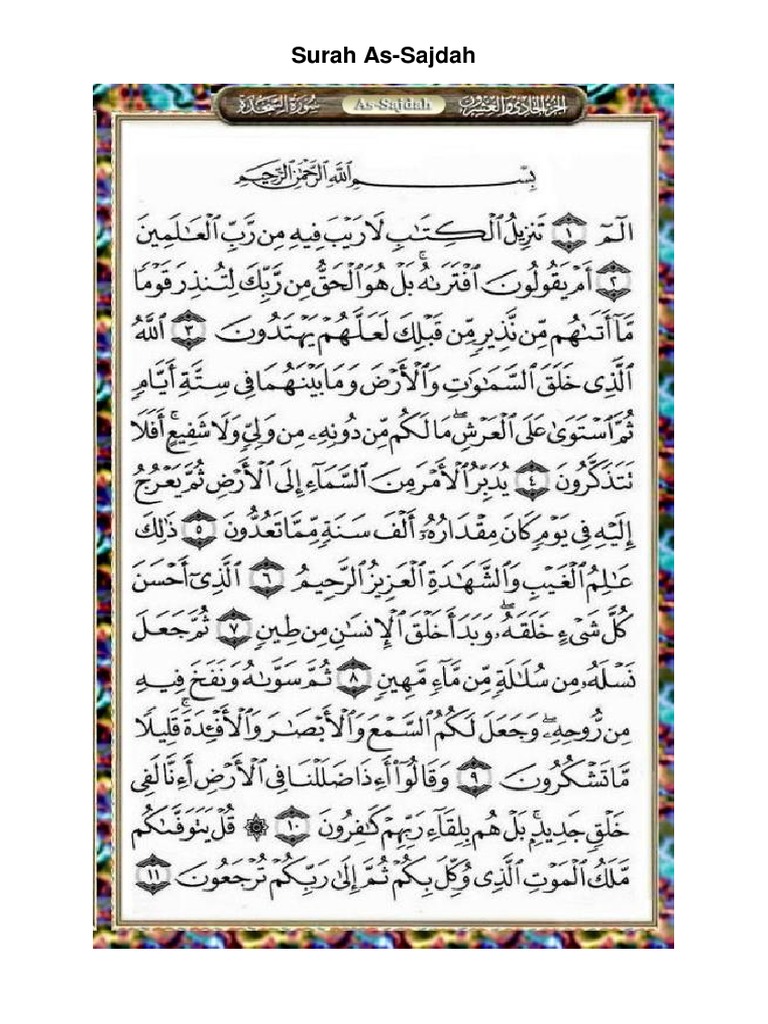 Surah As-Sajdah
سُورَةُ السَّجْدَة As-Sajdah الجزء الحادي والعشرون
بِسْمِ اللَّهِ الرَّحْمَٰنِ الرَّحِيمِ
الٓمٓ ١ تَنزِيلُ ٱلْكِتَٰبِ لَا رَيْبَ فِيهِ مِن رَّبِّ ٱلْعَٰلَمِينَ
٢ أَمْ يَقُولُونَ ٱفْتَرَىٰهُ ۚ بَلْ هُوَ ٱلْحَقُّ مِن رَّبِّكَ لِتُنذِرَ قَوْمًا
مَّآ أَتَىٰهُم مِّن نَّذِيرٍ مِّن قَبْلِكَ لَعَلَّهُمْ يَهْتَدُونَ ٣ ٱللَّهُ
ٱلَّذِى خَلَقَ ٱلسَّمَٰوَٰتِ وَٱلْأَرْضَ وَمَا بَيْنَهُمَا فِى سِتَّةِ أَيَّامٍ
ثُمَّ ٱسْتَوَىٰ عَلَى ٱلْعَرْشِ ۖ مَا لَكُم مِّن دُونِهِۦ مِن وَلِىٍّ وَلَا شَفِيعٍ ۚ أَفَلَا
تَتَذَكَّرُونَ ٤ يُدَبِّرُ ٱلْأَمْرَ مِنَ ٱلسَّمَآءِ إِلَى ٱلْأَرْضِ ثُمَّ يَعْرُجُ
إِلَيْهِ فِى يَوْمٍ كَانَ مِقْدَارُهُۥٓ أَلْفَ سَنَةٍ مِّمَّا تَعُدُّونَ ٥ ذَٰلِكَ
عَٰلِمُ ٱلْغَيْبِ وَٱلشَّهَٰدَةِ ٱلْعَزِيزُ ٱلرَّحِيمُ ٦ ٱلَّذِىٓ أَحْسَنَ
كُلَّ شَىْءٍ خَلَقَهُۥ ۖ وَبَدَأَ خَلْقَ ٱلْإِنسَٰنِ مِن طِينٍ ٧ ثُمَّ جَعَلَ
نَسْلَهُۥ مِن سُلَٰلَةٍ مِّن مَّآءٍ مَّهِينٍ ٨ ثُمَّ سَوَّىٰهُ وَنَفَخَ فِيهِ
مِن رُّوحِهِۦ ۖ وَجَعَلَ لَكُمُ ٱلسَّمْعَ وَٱلْأَبْصَٰرَ وَٱلْأَفْـِٔدَةَ ۚ قَلِيلًا
مَّا تَشْكُرُونَ ٩ وَقَالُوٓا۟ أَءِذَا ضَلَلْنَا فِى ٱلْأَرْضِ أَءِنَّا لَفِى
خَلْقٍ جَدِيدٍۭ ۚ بَلْ هُم بِلِقَآءِ رَبِّهِمْ كَٰفِرُونَ ١٠ ۞ قُلْ يَتَوَفَّىٰكُم
مَّلَكُ ٱلْمَوْتِ ٱلَّذِى وُكِّلَ بِكُمْ ثُمَّ إِلَىٰ رَبِّكُمْ تُرْجَعُونَ ١١